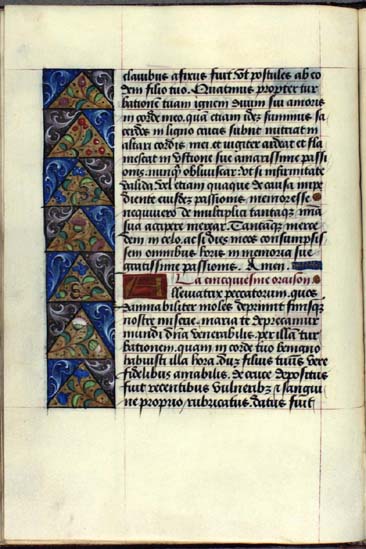 clauibus afixus fuit Vt postules ab eo
dem filio tuo. Quatinus propter tur
bationem tuam ignem diuini sui amoris
in corde meo. quā etiam idez summus sa
cerdos in ligno crucis subiit nutriat in
altari cordis mei et iugiter ardeat et fla
mescat in vstione sue amarissime passi
onis. nunqꝫ obliuiscar. Vt si infirmitate
valida vel etiam quaque de causa impe
diente eiusdeꝫ passionis memoresse
nequiuero de multiplici tantaqꝫ
sua accipere merear. Tantaqꝫ merce
dem in celo. ac si dies meos consumpsis
sem omnibus horis in memoria sue
gratissime passionis. Amen.
La cincquiesme oraison
lleuiatrix peccatorum. quos
damnabiliter moles deprimit
nostre miserie. maria te deprecamur
mundi dn̄a venerabilis. per illam tur
bationem. quam in corde tuo benigno
habuisti illa hora. Duꝫ filius tuus vere
fidelibus amabilis. de cruce depositus
fuit recentibus vulneribꝫ ⁊ sangui
ne proprio rubricatus. datus fuit